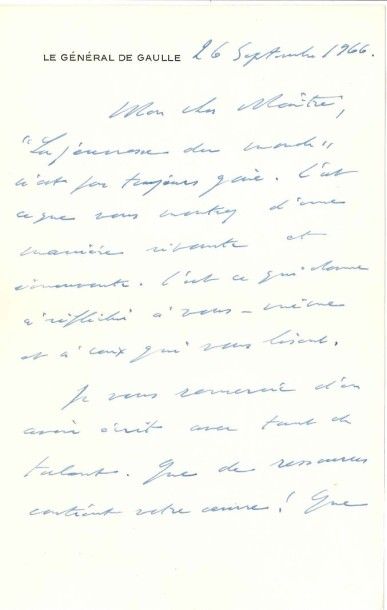 LE GÉNÉRAL DE GAULLE 26 Septembre 1966.
Mon cher Maître,
"La jeunesse du monde"
n'est pas toujours gaie. C'est
ce que vous montrez d'une
manière vivante et
émouvante. C'est ce qui donne
à réfléchir à vous-même
et à ceux qui vous lisent.
Je vous remercie d'en
avoir écrit avec tant de
talent. Que de ressources
contient votre œuvre ! Que